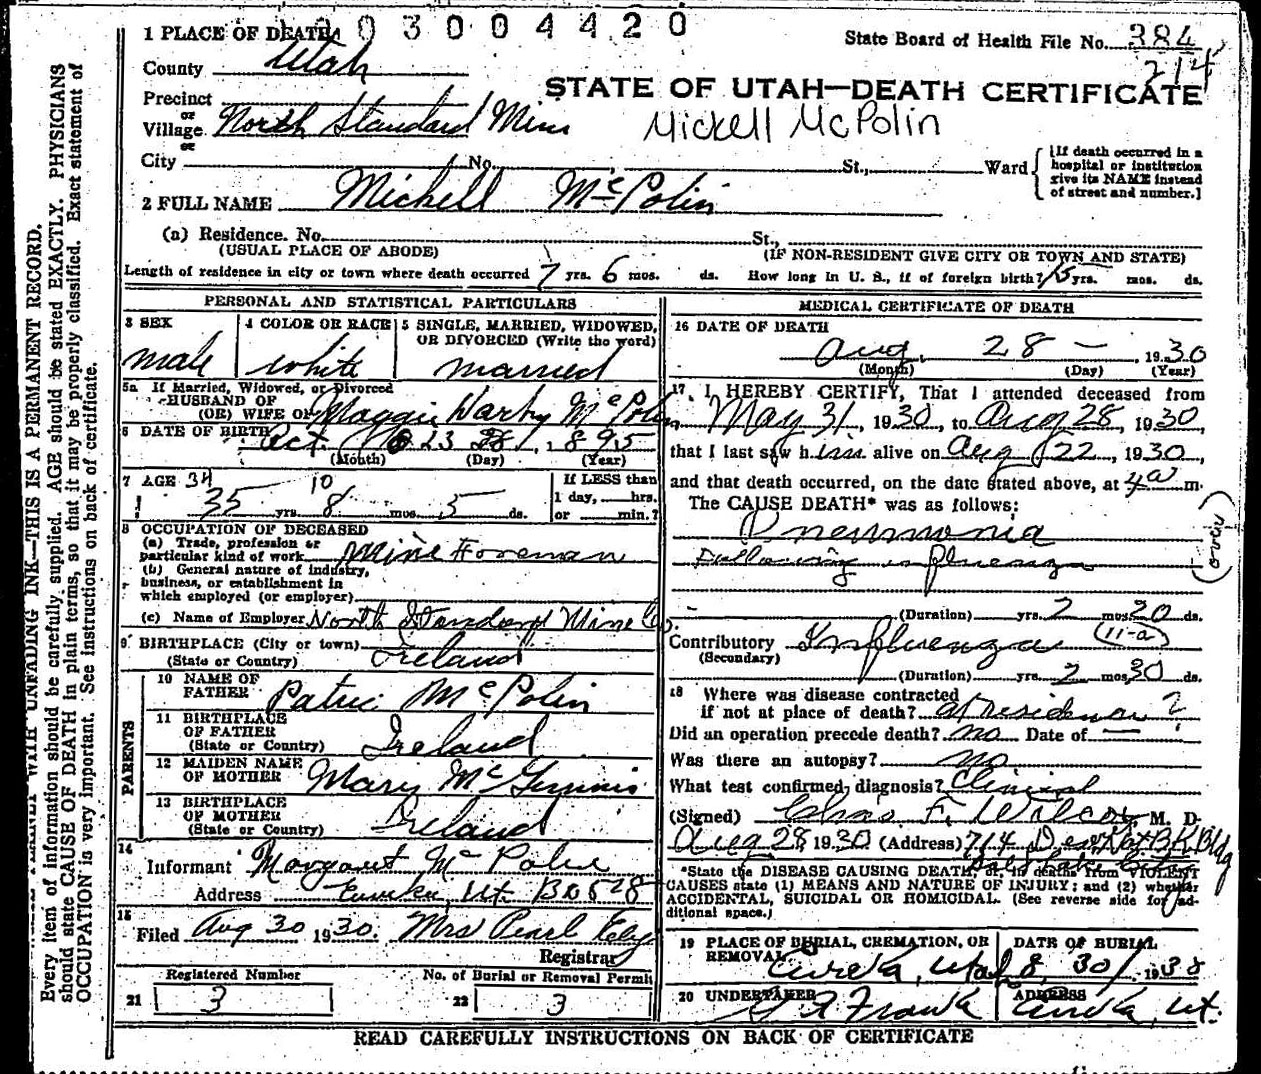 03004420
1 PLACE OF DEATH
State Board of Health File No. 384
214
County Utah
STATE OF UTAH—DEATH CERTIFICATE
Precinct
or
Village North Standard Mine
Mickell McPolin
or
City No. St., Ward
[If death occurred in a
hospital or institution
give its NAME instead
of street and number.]
2 FULL NAME Mickell McPolin
(a) Residence. No. St.,
(USUAL PLACE OF ABODE) (IF NON-RESIDENT GIVE CITY OR TOWN AND STATE)
Length of residence in city or town where death occurred 7 yrs. 6 mos. ds. How long in U. S., if of foreign birth? 15 yrs. mos. ds.
PERSONAL AND STATISTICAL PARTICULARS
3 SEX 4 COLOR OR RACE 5 SINGLE, MARRIED, WIDOWED,
OR DIVORCED (Write the word)
male white married
5a If Married, Widowed, or Divorced
HUSBAND OF
(OR) WIFE OF Maggie Harby McPolin
6 DATE OF BIRTH Oct 23 28, 1895
(Month) (Day) (Year)
7 AGE 34 10
35 yrs. 8 mos. 5 ds.
If LESS than
1 day, hrs.
or min.?
8 OCCUPATION OF DECEASED
(a) Trade, profession or
particular kind of work Mine Foreman
(b) General nature of industry,
business, or establishment in
which employed (or employer)
(c) Name of Employer North Standard Mine Co.
9 BIRTHPLACE (City or town)
(State or Country) Ireland
PARENTS
10 NAME OF
FATHER Patric McPolin
11 BIRTHPLACE
OF FATHER
(State or Country) Ireland
12 MAIDEN NAME
OF MOTHER Mary McGinnis
13 BIRTHPLACE
OF MOTHER
(State or Country) Ireland
14
Informant Margaret McPolin
Address Eureka, Ut. Box 528
15
Filed Aug 30 1930. Mrs Pearl
Registrar
Registered Number No. of Burial or Removal Permit
21 3 22 3
MEDICAL CERTIFICATE OF DEATH
16 DATE OF DEATH
Aug. 28 — , 1930
(Month) (Day) (Year)
17. I, HEREBY CERTIFY, That I attended deceased from
May 31, 1930, to Aug 28, 1930
that I last saw him alive on Aug 22, 1930,
and that death occurred, on the date stated above, at 4 a m.
The CAUSE DEATH* was as follows:
Pneumonia
Following influenza
(over)
(Duration) yrs. 2 mos. 20 ds.
Contributory Influenza (11-a)
(Secondary)
(Duration) yrs. 2 mos. 30 ds.
18 Where was disease contracted
if not at place of death? at residence ?
Did an operation precede death? no Date of —
Was there an autopsy? no
What test confirmed diagnosis? Clinical
(Signed) Chas F. Wilcox, M. D.
Aug 28 1930 (Address) 714 Des Nat BK Bldg
Salt Lake City
*State the DISEASE CAUSING DEATH, or, in deaths from VIOLENT
CAUSES state (1) MEANS AND NATURE OF INJURY; and (2) whether
ACCIDENTAL, SUICIDAL OR HOMICIDAL. (See reverse side for ad-
ditional space.)
19 PLACE OF BURIAL, CREMATION, OR
REMOVAL
DATE OF BURIAL
Eureka, Utah 8 30/ 1938
20 UNDERTAKER ADDRESS
Franks Eureka, Ut.
READ CAREFULLY INSTRUCTIONS ON BACK OF CERTIFICATE
WITH UNFADING INK—THIS IS A PERMANENT RECORD.
Every item of information should be carefully supplied. AGE should be stated EXACTLY. PHYSICIANS
should state CAUSE OF DEATH in plain terms, so that it may be properly classified. Exact statement of
OCCUPATION is very important. See instructions on back of certificate.